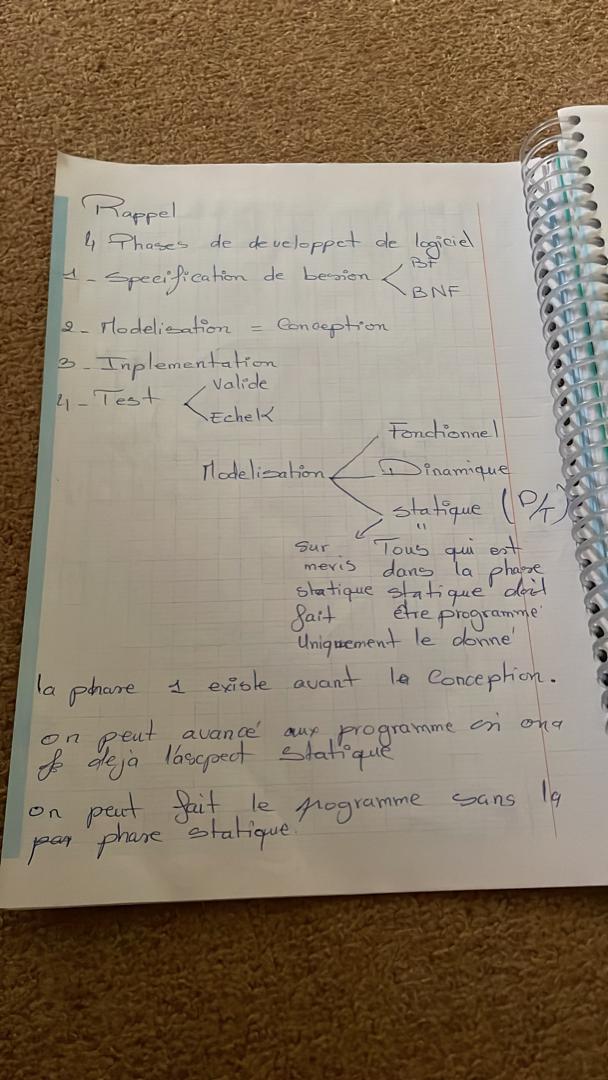 Rappel
4 Phases de developpet de logiciel
1 - Specification de besion < BF
BNF
2 - Modelisation = Conception
3 - Inplementation
4 - Test < Valide
Echek
Fonctionnel
Modelisation Dinamique
statique (D/T)
"
sur Tous qui est
meris dans la phase
statique statique doit
fait être programme
Uniquement le donné
la phase 1 existe avant le Conception.
on peut avancé aux programme si ona
deja l'ascpect statique
on peut fait le programme sans la
phase statique.